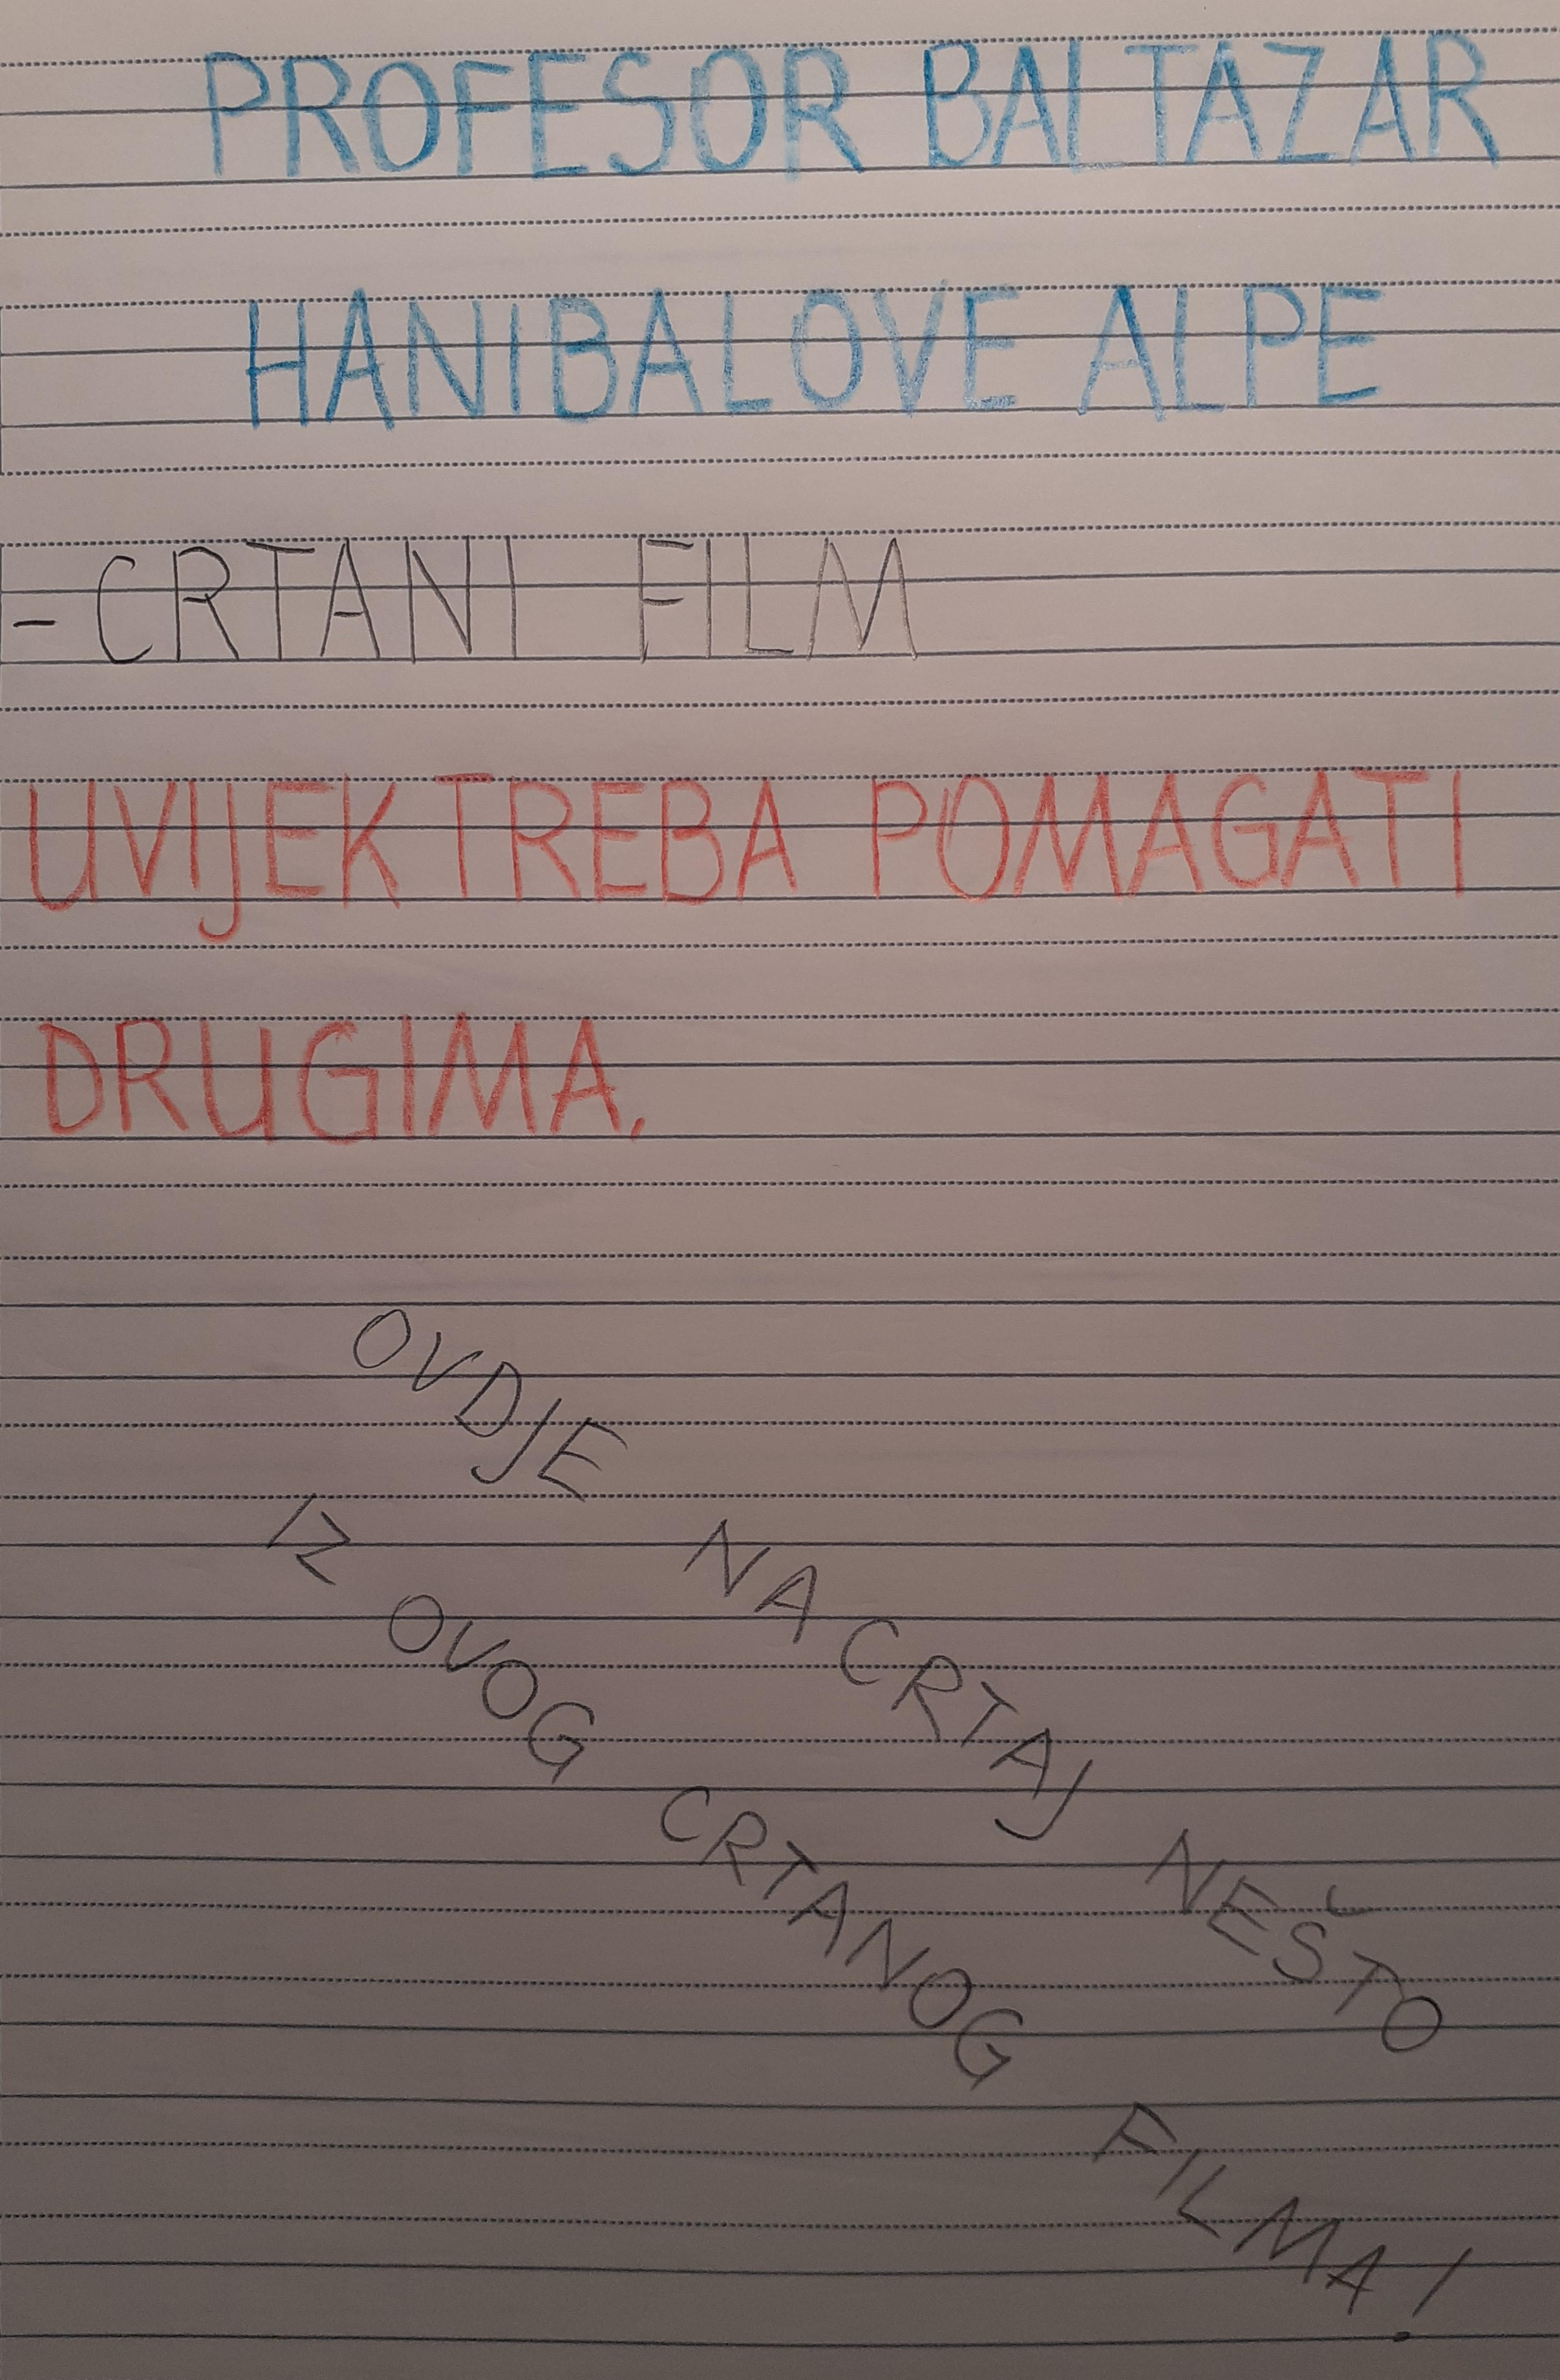 PROFESOR BALTAZAR
HANIBALOVE ALPE
-CRTANI FILM
UVIJEK TREBA POMAGATI
DRUGIMA.
OVDJE NACRTAJ NEŠTO
IZ OVOG CRTANOG FILMA!